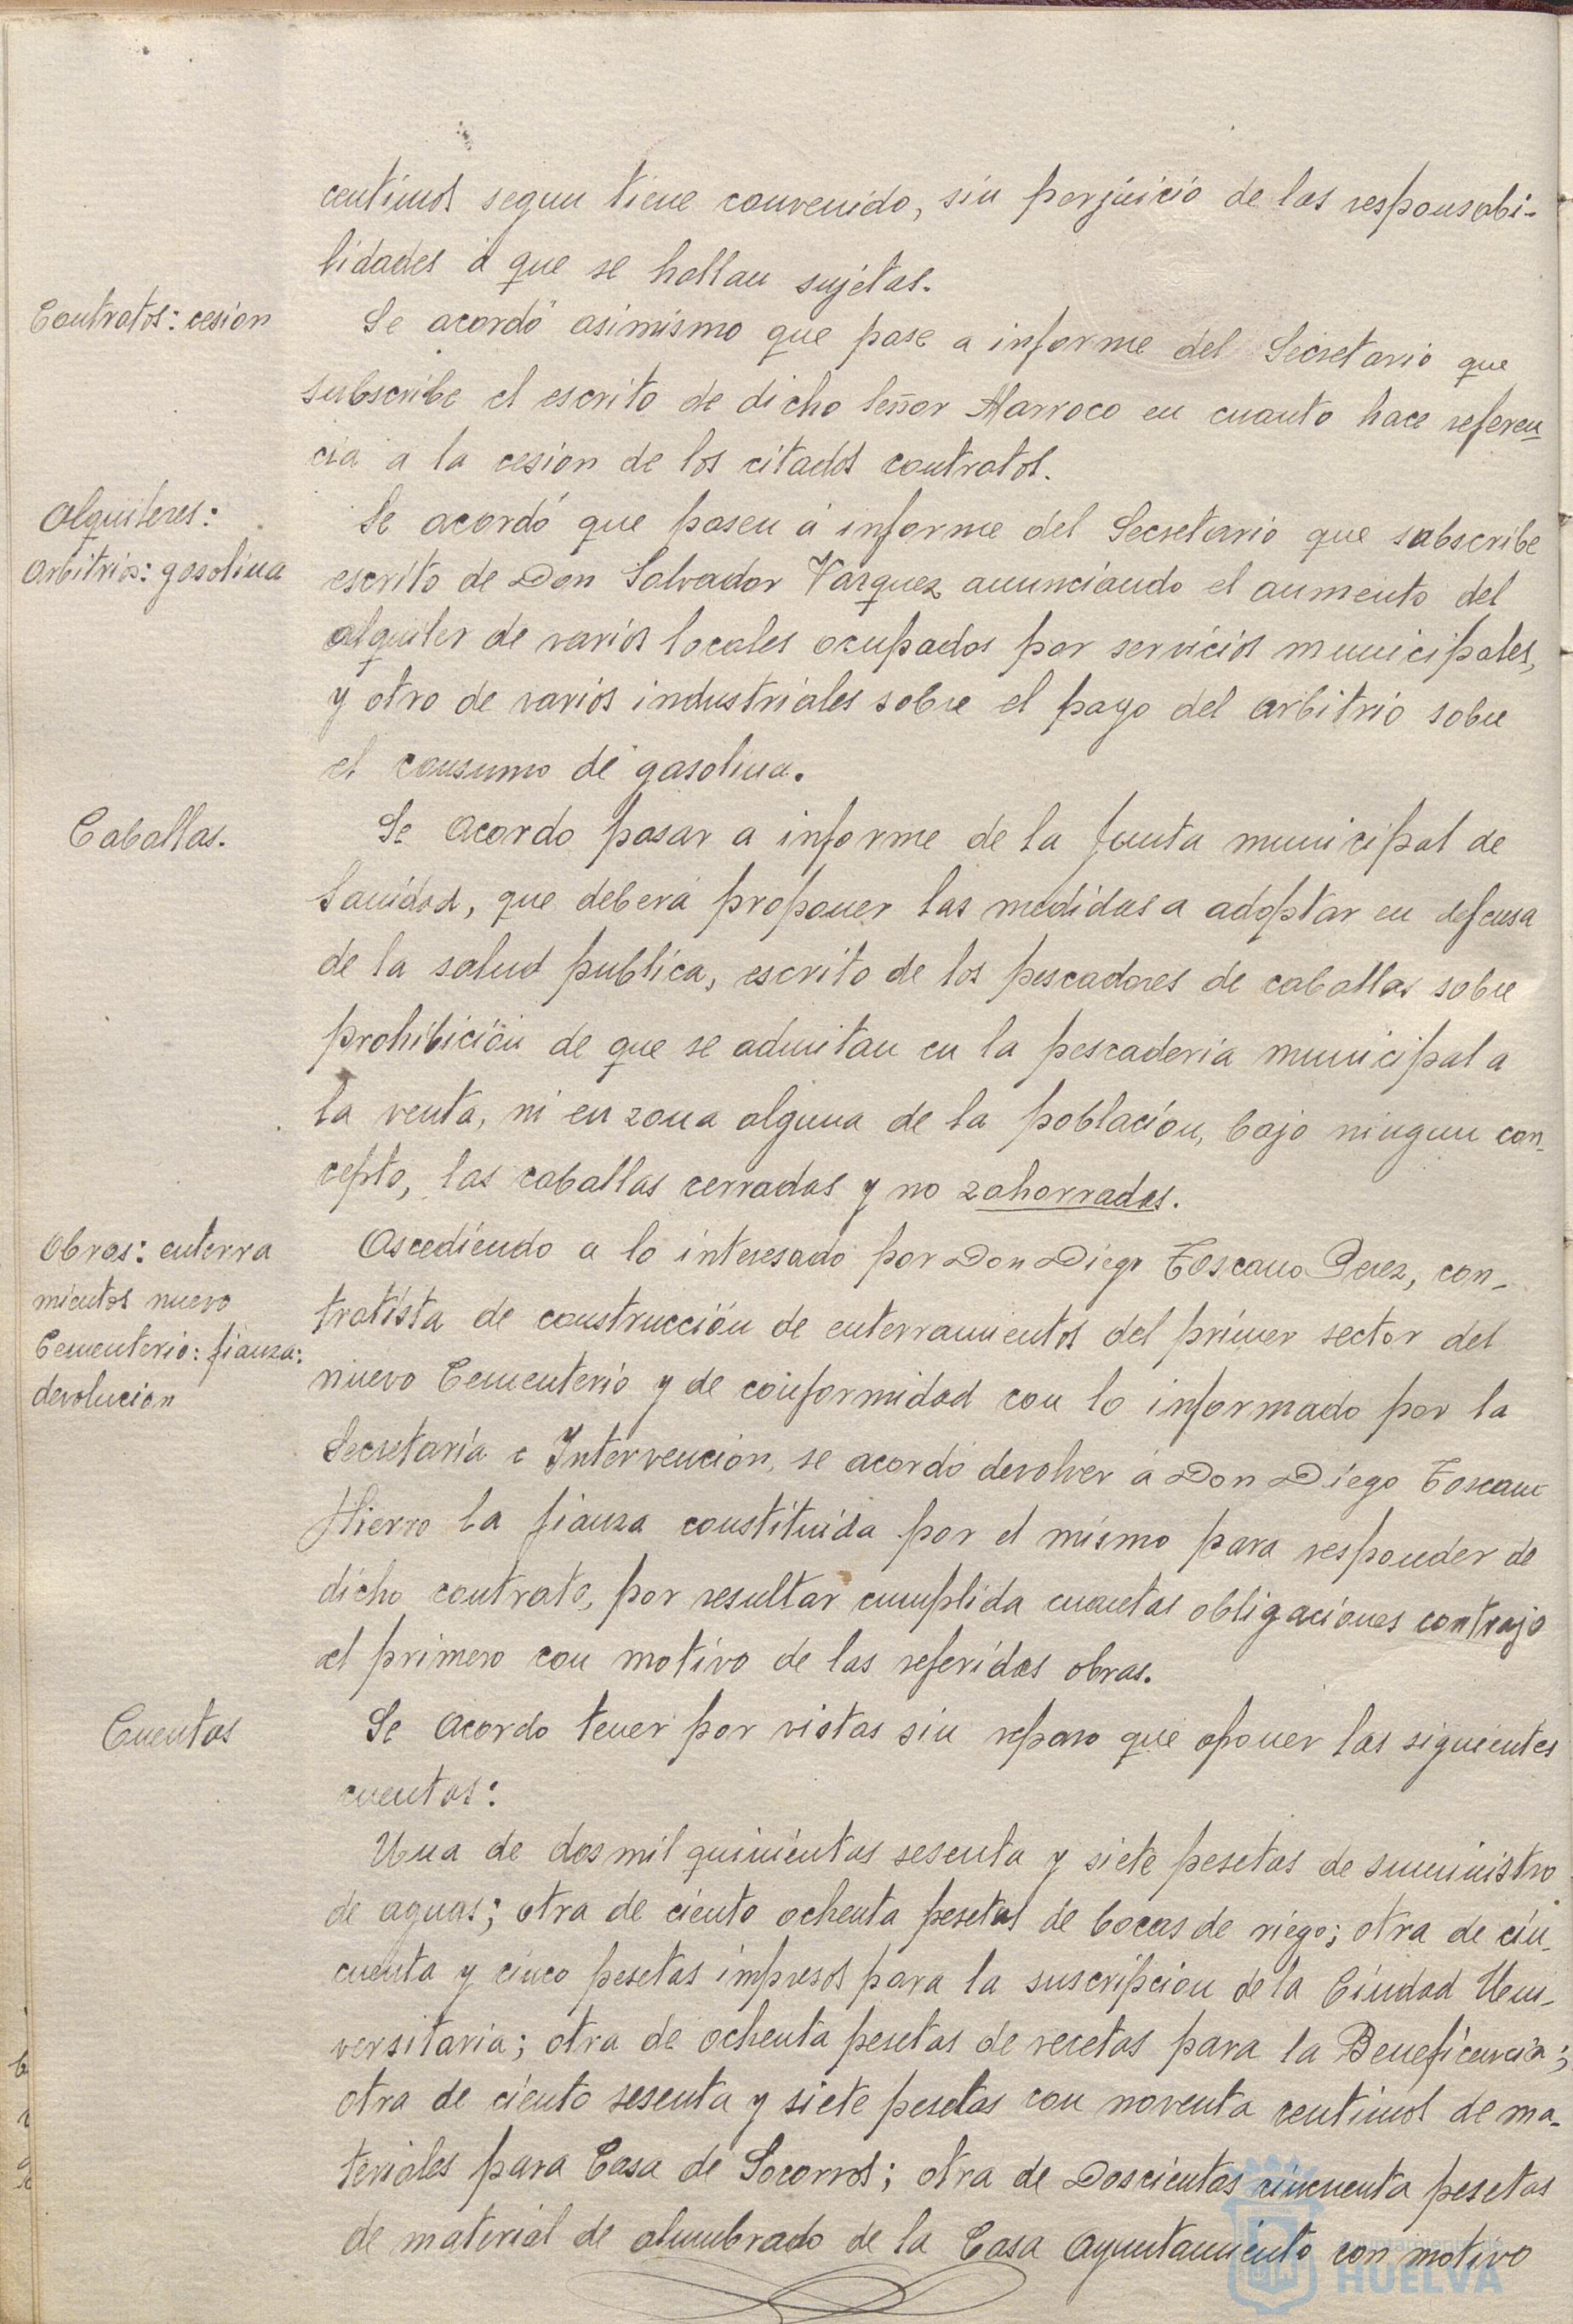 centimos segun tiene convenido, sin perjuicio de las responsabi-
lidades á que se hallan sujetas.
Contratos: cesion
Se acordó asimismo que pase a informe del Secretario que
subscribe el escrito de dicho Señor Marroco en cuanto hace referen
cia a la cesion de los citados contratos.
Alquileres:
Arbitrios: gasolina
Se acordó que pasen á informe del Secretario que subscribe
escrito de Don Salvador Vazquez anunciando el aumento del
alquiler de varios locales ocupados por servicios municipales,
y otro de varios industriales sobre el pago del arbitrio sobre
el consumo de gasolina.
Caballas.
Se acordo pasar a informe de la Junta municipal de
Sanidad, que deberá proponer las medidas a adoptar en defensa
de la salud publica, escrito de los pescadores de caballas sobre
prohibición de que se admitan en la pescaderia municipal a
la venta, ni en zona alguna de la población, bajo ningun con-
cepto, las caballas cerradas y no zahorradas.
Obras: enterra
mientos nuevo
Cementerio: fianza:
devolucion
Accediendo a lo interesado por Don Diego Toscano Perez, con-
tratista de construcción de enterramientos del primer sector del
nuevo Cementerio y de conformidad con lo informado por la
Secretaría e Intervencion, se acordó devolver á Don Diego Toscano
Hierro la fianza constituida por el mismo para responder de
dicho contrato, por resultar cumplida cuantas obligaciones contrajo
el primero con motivo de las referidas obras.
Cuentas
Se acordo tener por vistas sin reparo que oponer las siguientes
cuentas:
Una de dos mil quinientas sesenta y siete pesetas de suministro
de aguas; otra de ciento ochenta pesetas de bocas de riego; otra de cin-
cuenta y cinco pesetas impresos para la suscripcion de la Ciudad Uni-
versitaria; otra de ochenta pesetas de recetas para la Beneficencia;
otra de ciento sesenta y siete pesetas con noventa centimos de ma-
teriales para Casa de Socorros; otra de Doscientas cincuenta pesetas
de material de alumbrado de la Casa Ayuntamiento con motivo
HUELVA